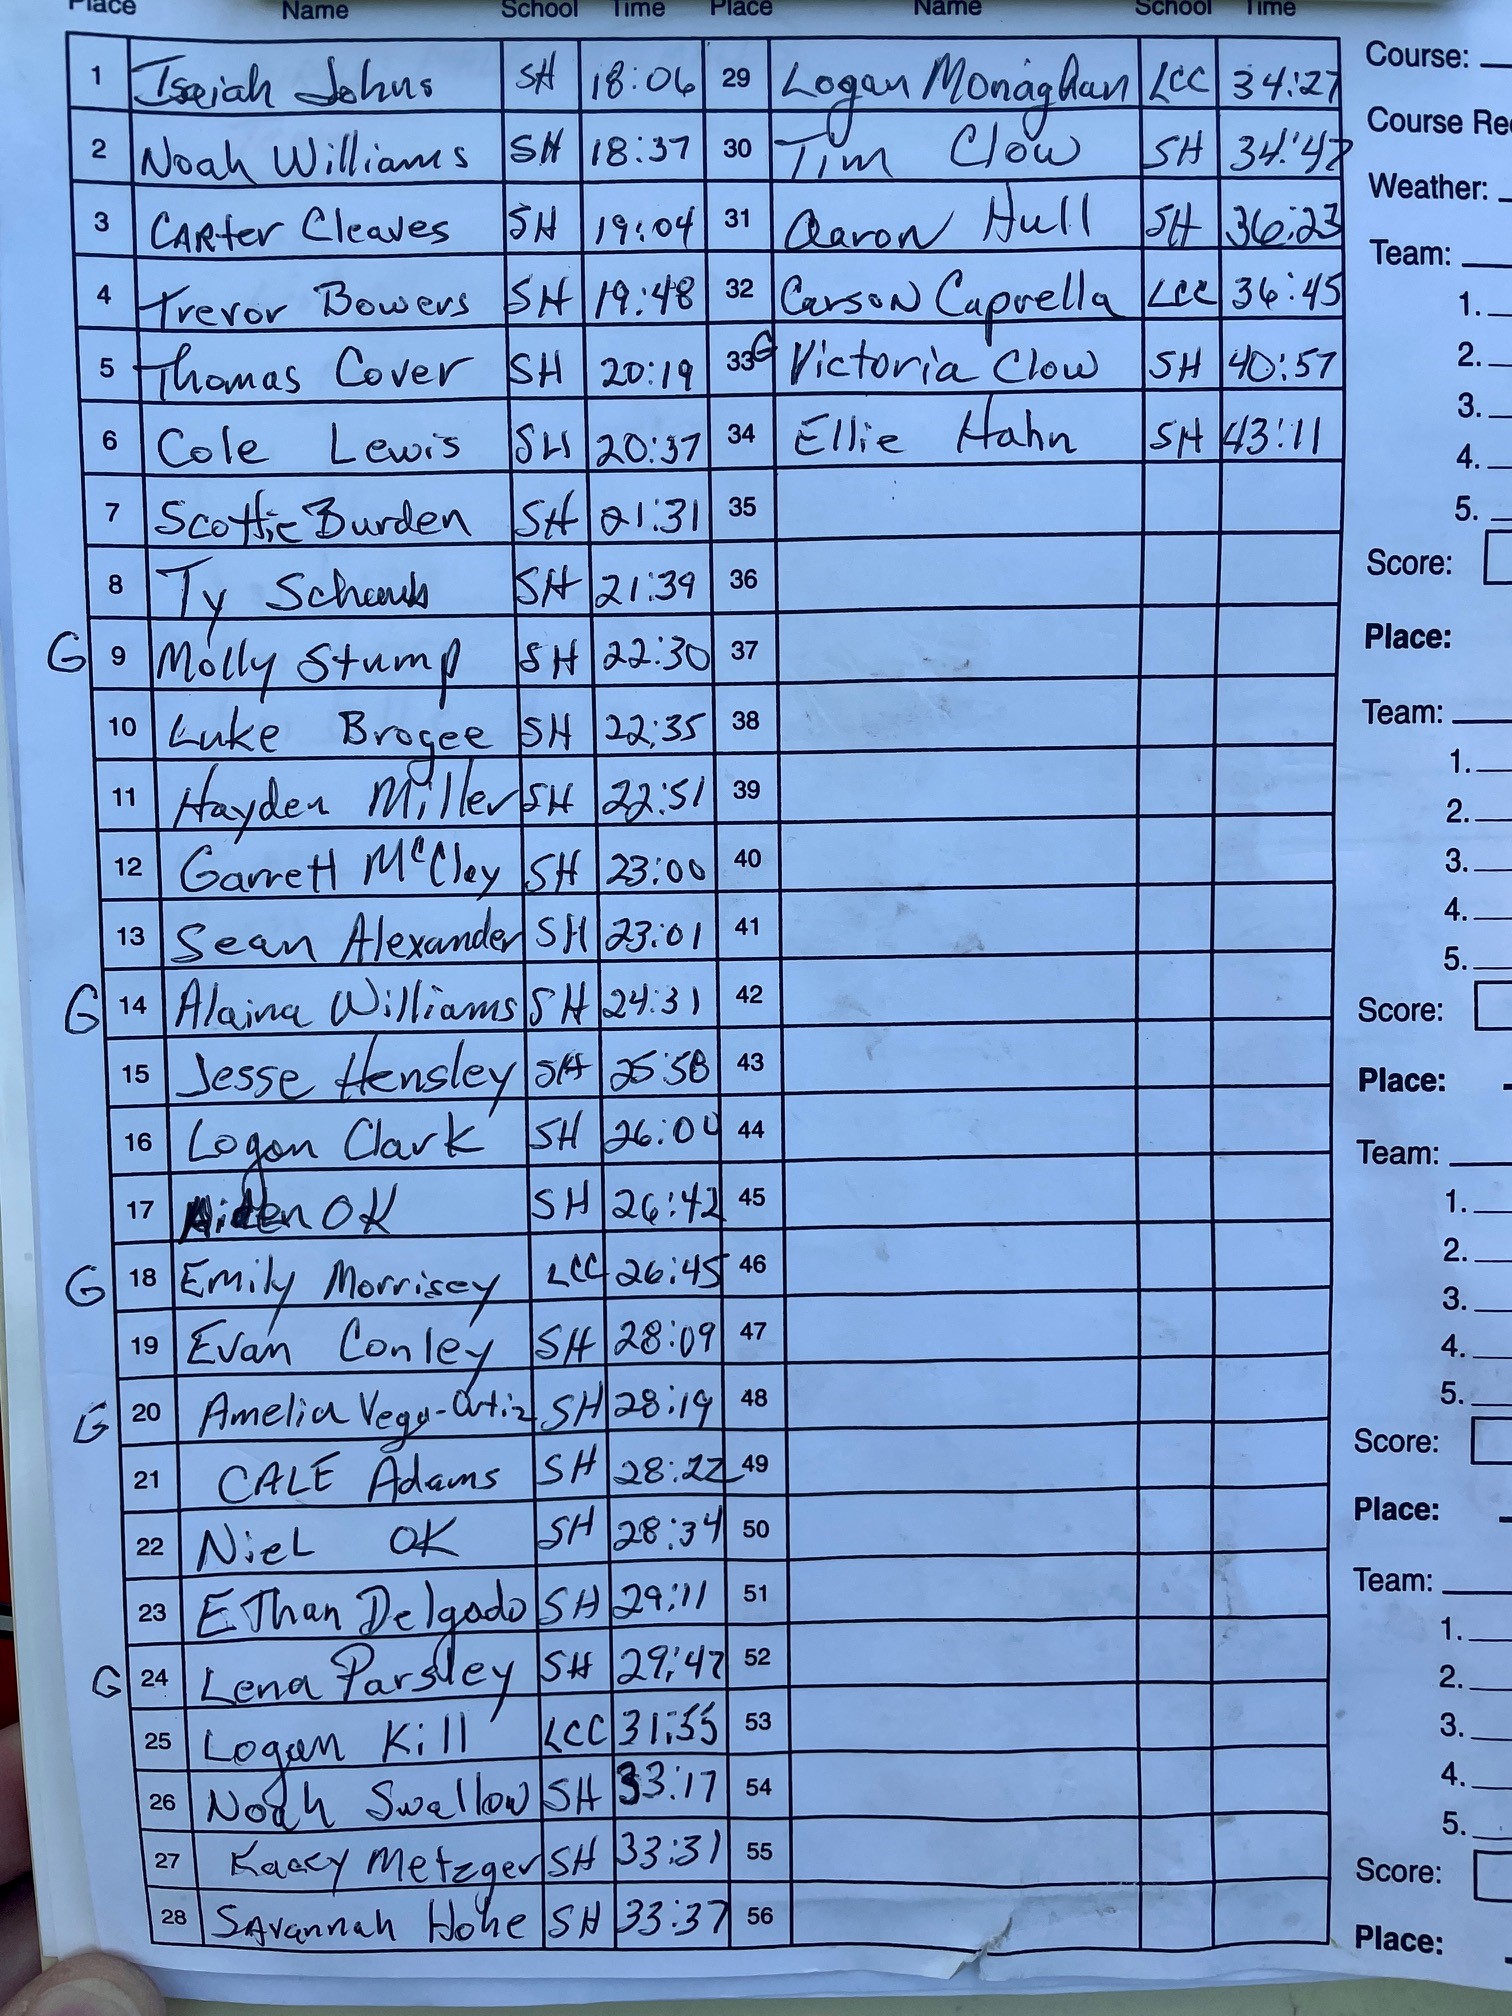 Place Name School Time Place Name School Time
1 Isaiah Johns SH 18:06
2 Noah Williams SH 18:37
3 CARter Cleaves SH 19:04
4 Trevor Bowers SH 19:48
5 Thomas Cover SH 20:19
6 Cole Lewis SH 20:37
7 Scottie Burden SH 21:31
8 Ty SH 21:39
G 9 Molly Stump SH 22:30
10 Luke Brogee SH 22:35
11 Hayden Miller SH 22:51
12 Garrett McCley SH 23:00
13 Sean Alexander SH 23:01
G 14 Alaina Williams SH 24:31
15 Jesse Hensley SH 25:58
16 Logan Clark SH 26:04
17 Aiden OK SH 26:42
G 18 Emily Morrisey LCC 26:45
19 Evan Conley SH 28:09
G 20 Amelia Vega-Ortiz SH 28:19
21 CALE Adams SH 28:22
22 NieL OK SH 28:34
23 EThan Delgado SH 29:11
G 24 Lena Parsley SH 29:47
25 Logan Kill LCC 31:55
26 Noah Swallow SH 33:17
27 Kacey Metzger SH 33:31
28 SAvannah Hohe SH 33:37
29 Logan Monaghan LCC 34:27
30 Tim Clow SH 34:47
31 Aaron Hull SH 36:23
32 Carson Caprella LCC 36:45
33 G Victoria Clow SH 40:57
34 Ellie Hahn SH 43:11
35
36
37
38
39
40
41
42
43
44
45
46
47
48
49
50
51
52
53
54
55
56
Course:
Course Rec
Weather:
Team:
1.
2.
3.
4.
5.
Score:
Place:
Team:
1.
2.
3.
4.
5.
Score:
Place:
Team:
1.
2.
3.
4.
5.
Score:
Place:
Team:
1.
2.
3.
4.
5.
Score:
Place: